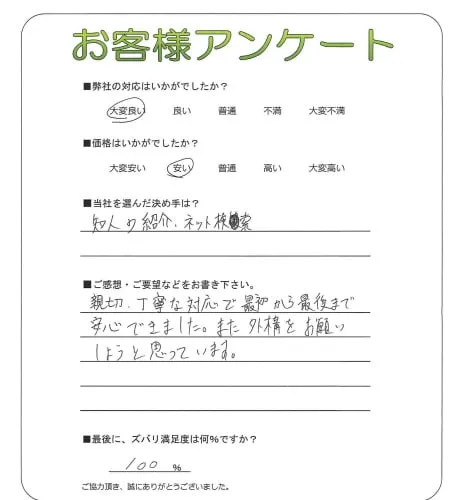 お客様アンケート
■弊社の対応はいかがでしたか?
大変良い 良い 普通 不満 大変不満
■価格はいかがでしたか?
大変安い 安い 普通 高い 大変高い
■当社を選んだ決め手は?
知人の紹介、ネット検索
■ご感想・ご要望などをお書き下さい。
親切、丁寧な対応で最初から最後まで
安心できました。また外構をお願い
しようと思っています。
■最後に、ズバリ満足度は何%ですか?
100 %
ご協力頂き、誠にありがとうございました。